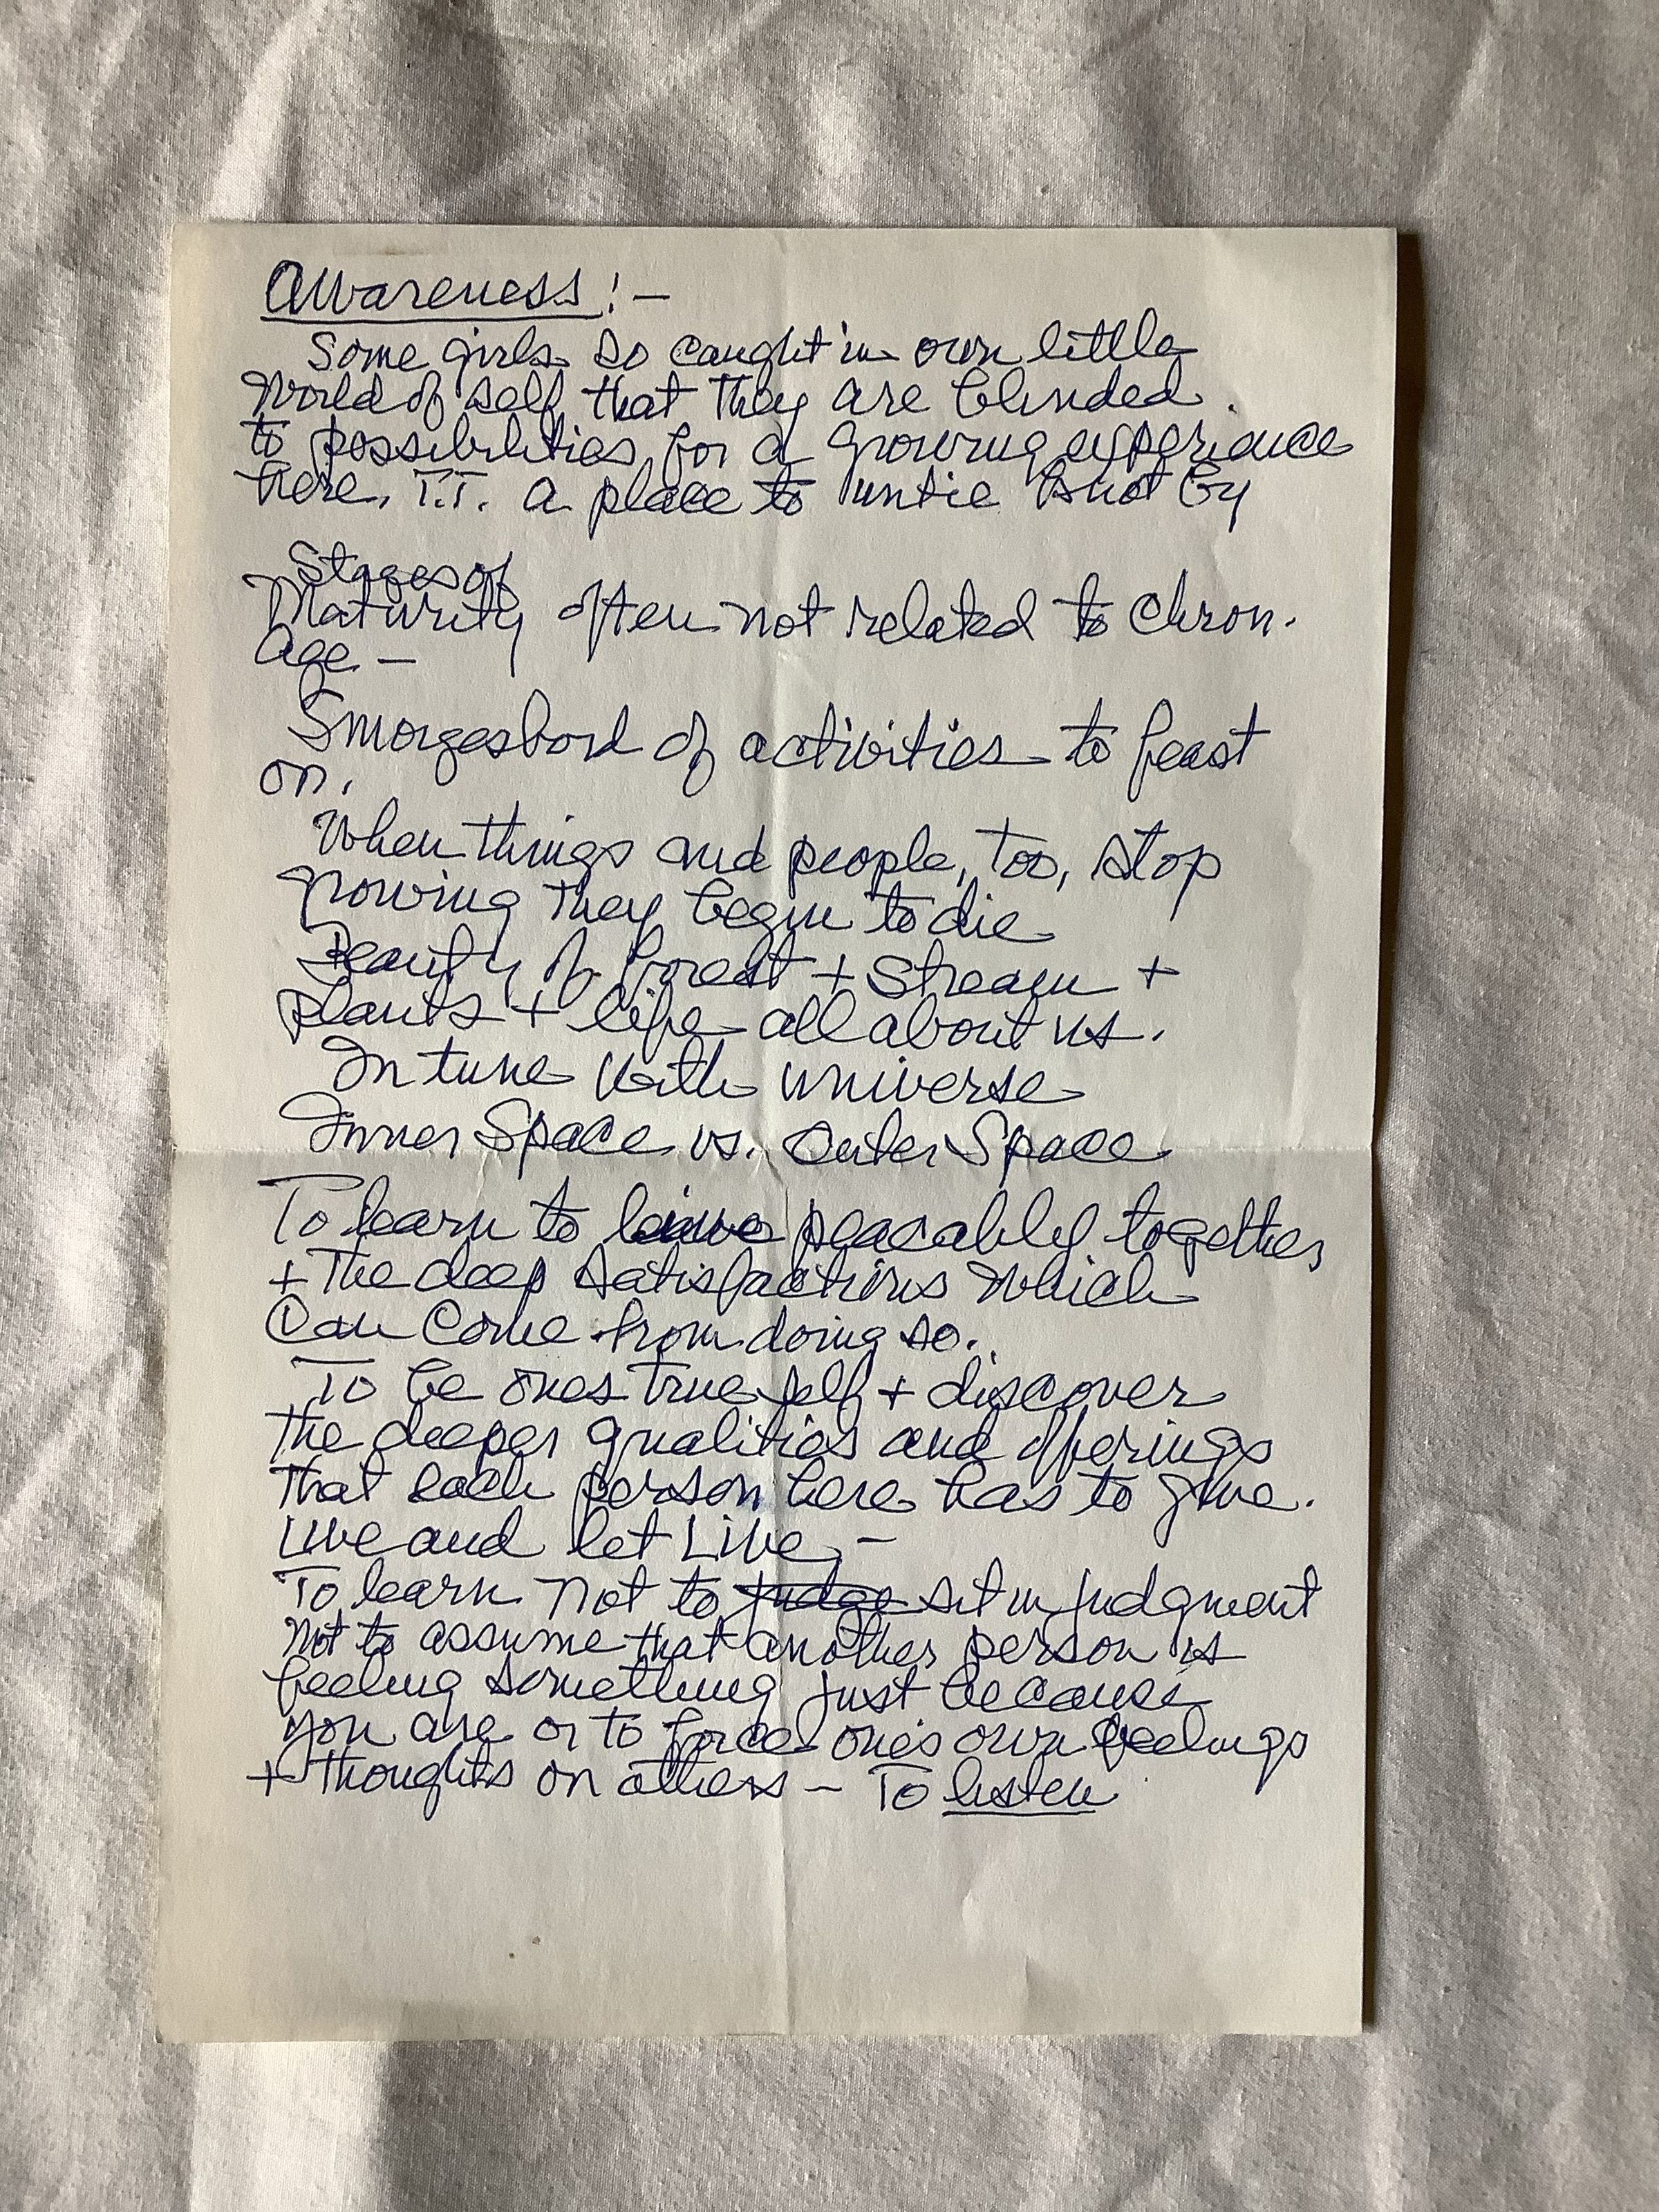 Awareness!-
Some girls so caught in own little
World of self that they are blinded.
to possibilities for a growing experience
here. T.T. a place to untie knot by
Stages of
Maturity often not related to Chron.
Age -
Smorgesbord of activities to feast
on.
When things and people, too, stop
growing they begin to die
Beauty of forest + stream +
plants + life all about us.
In tune with universe
Inner Space vs. Outer Space
To learn to live peacably together
+ The deep satisfactions which
Can Come from doing so.
To be ones true self + discover
the deeper qualities and offerings
that each person here has to give.
Live and let Live, -
To learn not to judge sit in judgment
not to assume that another person is
feeling something just because
you are or to force one's own feelings
+ thoughts on others - To listen